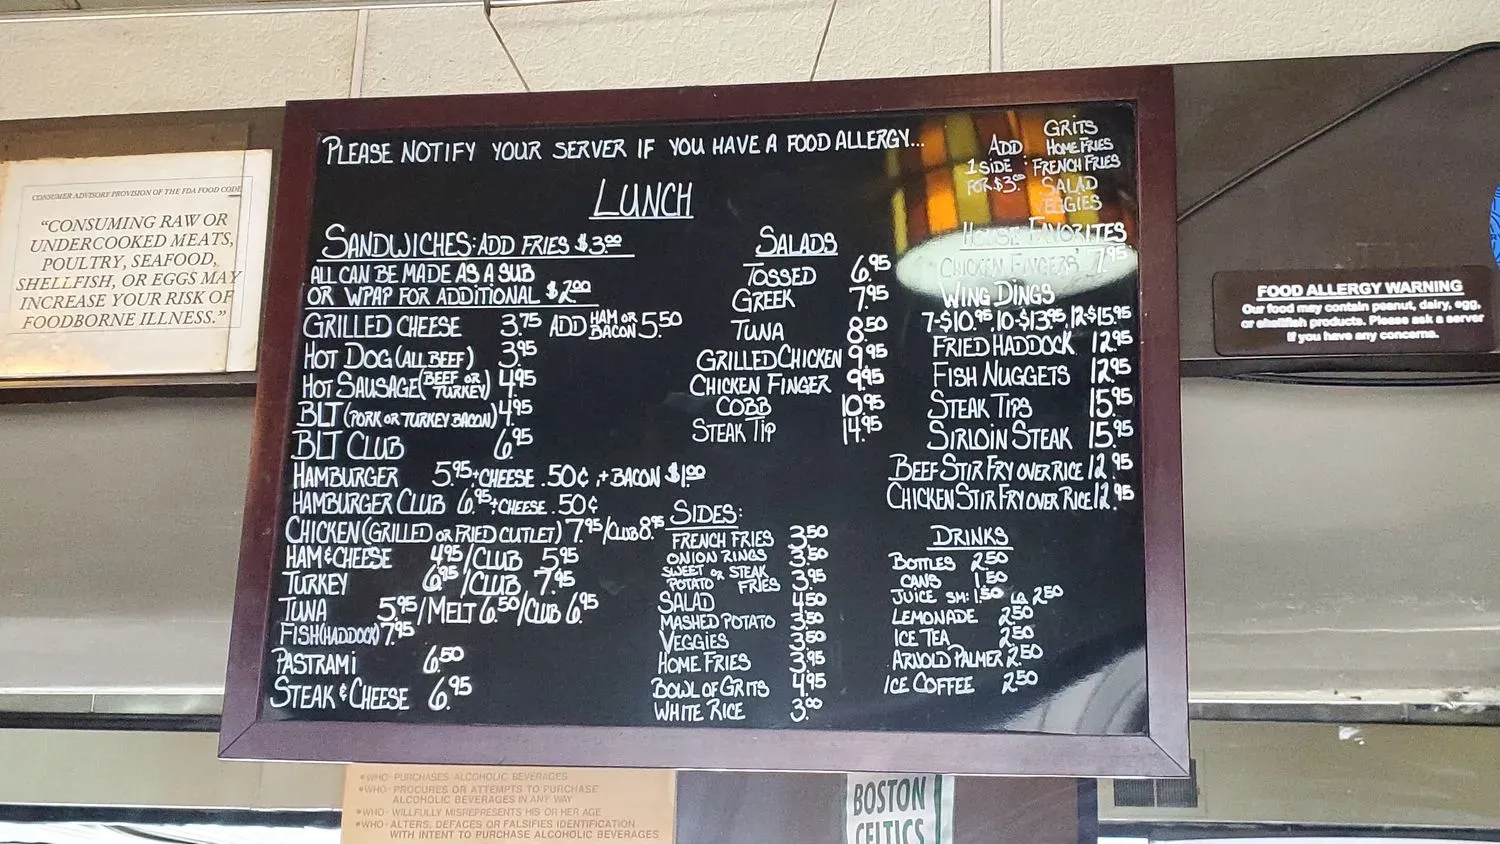 CONSUMER ADVISORY PROVISION OF THE FDA FOOD CODE
"CONSUMING RAW OR
UNDERCOOKED MEATS,
POULTRY, SEAFOOD,
SHELLFISH, OR EGGS MAY
INCREASE YOUR RISK OF
FOODBORNE ILLNESS."
PLEASE NOTIFY YOUR SERVER IF YOU HAVE A FOOD ALLERGY...
LUNCH
SANDWICHES: ADD FRIES $3.00
ALL CAN BE MADE AS A SUB
OR WPAP FOR ADDITIONAL $2.00
GRILLED CHEESE 3.75 ADD HAM OR BACON 5.50
HOT DOG (ALL BEEF) 3.95
HOT SAUSAGE (BEEF OR TURKEY) 4.95
BLT (PORK OR TURKEY BACON) 4.95
BLT CLUB 6.95
HAMBURGER 5.95 + CHEESE .50¢, + BACON $1.00
HAMBURGER CLUB 6.95 + CHEESE .50¢
CHICKEN (GRILLED OR FRIED CUTLET) 7.95/CLUB 8.95
HAM & CHEESE 4.95/CLUB 5.95
TURKEY 6.95/CLUB 7.95
TUNA 5.95/MELT 6.50/CLUB 6.95
FISH (HADDOCK) 7.95
PASTRAMI 6.50
STEAK & CHEESE 6.95
SALADS
TOSSED 6.95
GREEK 7.95
TUNA 8.50
GRILLED CHICKEN 9.95
CHICKEN FINGER 9.95
COBB 10.95
STEAK TIP 14.95
SIDES:
FRENCH FRIES 3.50
ONION RINGS 3.50
SWEET OR STEAK
POTATO FRIES 3.95
SALAD 4.50
MASHED POTATO 3.50
VEGGIES 3.50
HOME FRIES 3.95
BOWL OF GRITS 4.95
WHITE RICE 3.00
ADD
1 SIDE :
FOR $3.00
GRITS
HOME FRIES
FRENCH FRIES
SALAD
VEGGIES
HOUSE FAVORITES
CHICKEN FINGERS 7.95
WING DINGS
7-$10.95, 10-$13.95, 12-$15.95
FRIED HADDOCK 12.95
FISH NUGGETS 12.95
STEAK TIPS 15.95
SIRLOIN STEAK 15.95
BEEF STIR FRY OVER RICE 12.95
CHICKEN STIR FRY OVER RICE 12.95
DRINKS
BOTTLES 2.50
CANS 1.50
JUICE SM: 1.50 LG 2.50
LEMONADE 2.50
ICE TEA 2.50
ARNOLD PALMER 2.50
ICE COFFEE 2.50
FOOD ALLERGY WARNING
Our food may contain peanut, dairy, egg,
or shellfish products. Please ask a server
if you have any concerns.
•WHO- PURCHASES ALCOHOLIC BEVERAGES
•WHO- PROCURES OR ATTEMPTS TO PURCHASE
ALCOHOLIC BEVERAGES IN ANY WAY
•WHO- WILLFULLY MISREPRESENTS HIS OR HER AGE
•WHO- ALTERS, DEFACES OR FALSIFIES IDENTIFICATION
WITH INTENT TO PURCHASE ALCOHOLIC BEVERAGES
BOSTON
CELTICS